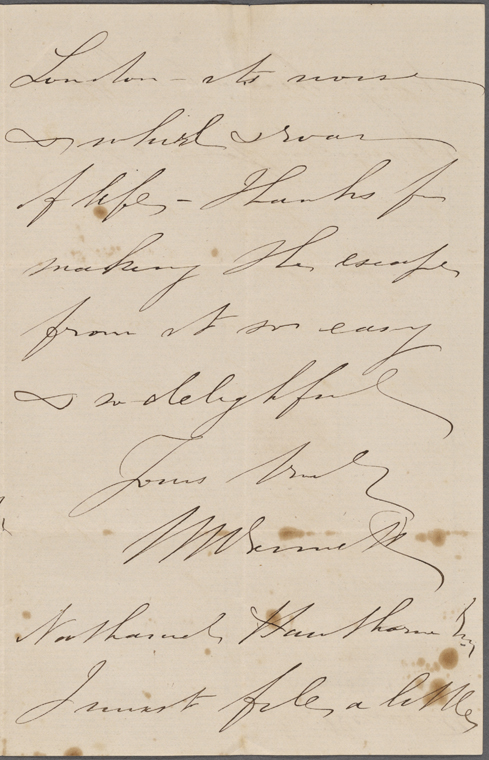 London – its noise
& whirl & roar
of life, – Thanks for
making the escape
from it so easy
& so delightful
Yours truly
W C Bennett
Nathaniel Hawthorne Esq
I must file, a little